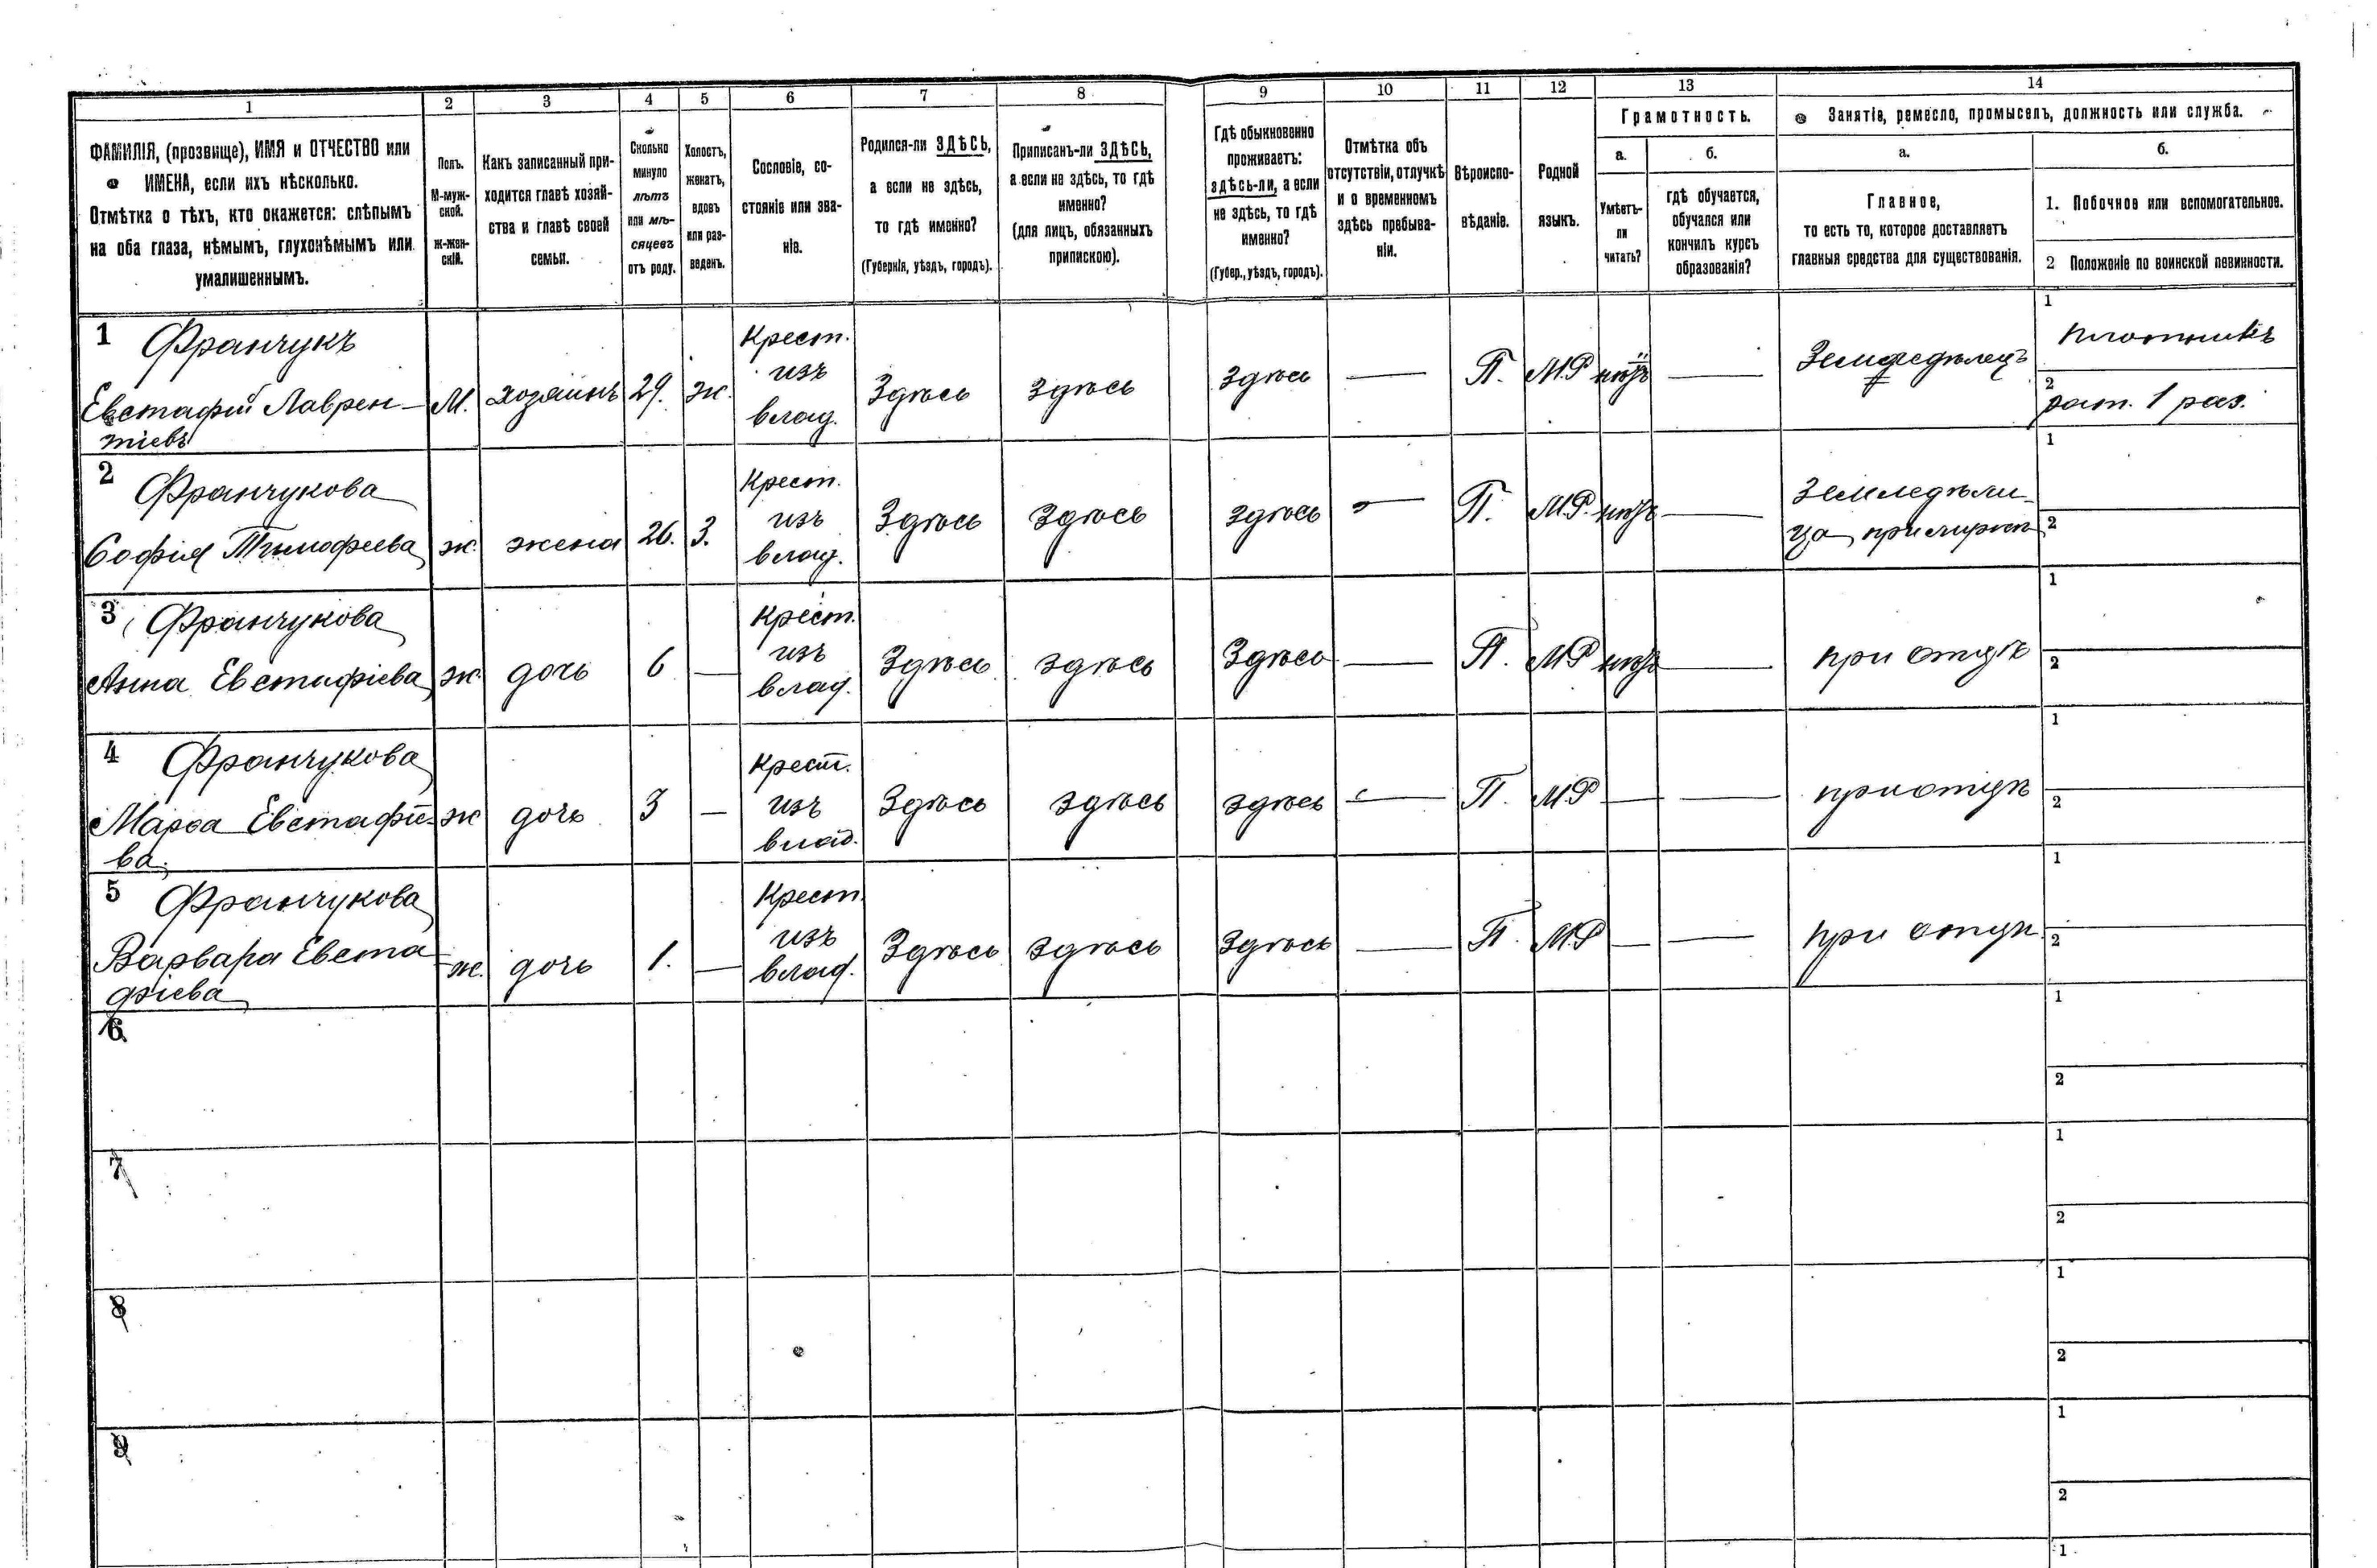 1 2 3 4 5 6 7 8 9 10 11 12 13 14
ФАМИЛІЯ, (прозвище), ИМЯ и ОТЧЕСТВО или
ИМЕНА, если ихъ нѣсколько.
Отмѣтка о тѣхъ, кто окажется: слѣпымъ
на оба глаза, нѣмымъ, глухонѣмымъ или
умалишеннымъ.
Полъ.
М-муж-
ской.
ж-жен-
скій.
Какъ записанный при-
ходится главѣ хозяй-
ства и главѣ своей
семьи.
Сколько
минуло
лѣтъ
или мѣ-
сяцевъ
отъ роду.
Холостъ,
женатъ,
вдовъ
или раз-
веденъ.
Сословіе, со-
стояніе или зва-
ніе.
Родился-ли ЗДѢСЬ,
а если не здѣсь,
то гдѣ именно?
(Губернія, уѣздъ, городъ).
Приписанъ-ли ЗДѢСЬ,
а если не здѣсь, то гдѣ
именно?
(для лицъ, обязанныхъ
припискою).
Гдѣ обыкновенно
проживаетъ:
здѣсь-ли, а если
не здѣсь, то гдѣ
именно?
(Губер., уѣздъ, городъ).
Отмѣтка объ
отсутствіи, отлучкѣ
и о временномъ
здѣсь пребыва-
ніи.
Вѣроиспо-
вѣданіе.
Родной
языкъ.
Грамотность.
а.
Умѣетъ-
ли
читать?
б.
гдѣ обучается,
обучался или
кончилъ курсъ
образованія?
Занятіе, ремесло, промыселъ, должность или служба.
а.
Главное,
то есть то, которое доставляетъ
главныя средства для существованія.
б.
1. Побочное или вспомогательное.
2 Положеніе по воинской повинности.
1 Франчукъ
Евстафій Лаврен-
тіевъ
М.
хозяинъ
29.
ж.
Крест.
изъ
влад.
Здѣсь
здѣсь
здѣсь
—
П.
М.Р
нѣтъ
—
Земледѣлецъ
1
плотникъ
2
рат. 1 раз.
2 Франчукова
Софія Тимофеева
ж.
жена
26.
З.
Крест.
изъ
влад.
Здѣсь
здѣсь
здѣсь
—
П.
М.Р.
нѣтъ
—
Земледѣли-
ца
1
2
3 Франчукова
Анна Евстафіева
ж.
дочь
6
—
Крест.
изъ
влад.
Здѣсь
здѣсь
Здѣсь
—
П.
М.Р
нѣтъ
—
при отцѣ
1
2
4 Франчукова
Марѳа Евстафіе-
ва
ж
дочь
3
—
Крест.
изъ
влад.
Здѣсь
здѣсь
здѣсь
—
П.
М.Р
—
—
при отцѣ
1
2
5 Франчукова
Варвара Евста-
фіева
ж.
дочь
1.
—
Крест.
изъ
влад.
Здѣсь
здѣсь
Здѣсь
—
П.
М.Р
—
—
при отцѣ
1
2
6
1
2
7
1
2
8
1
2
9
1
2
1